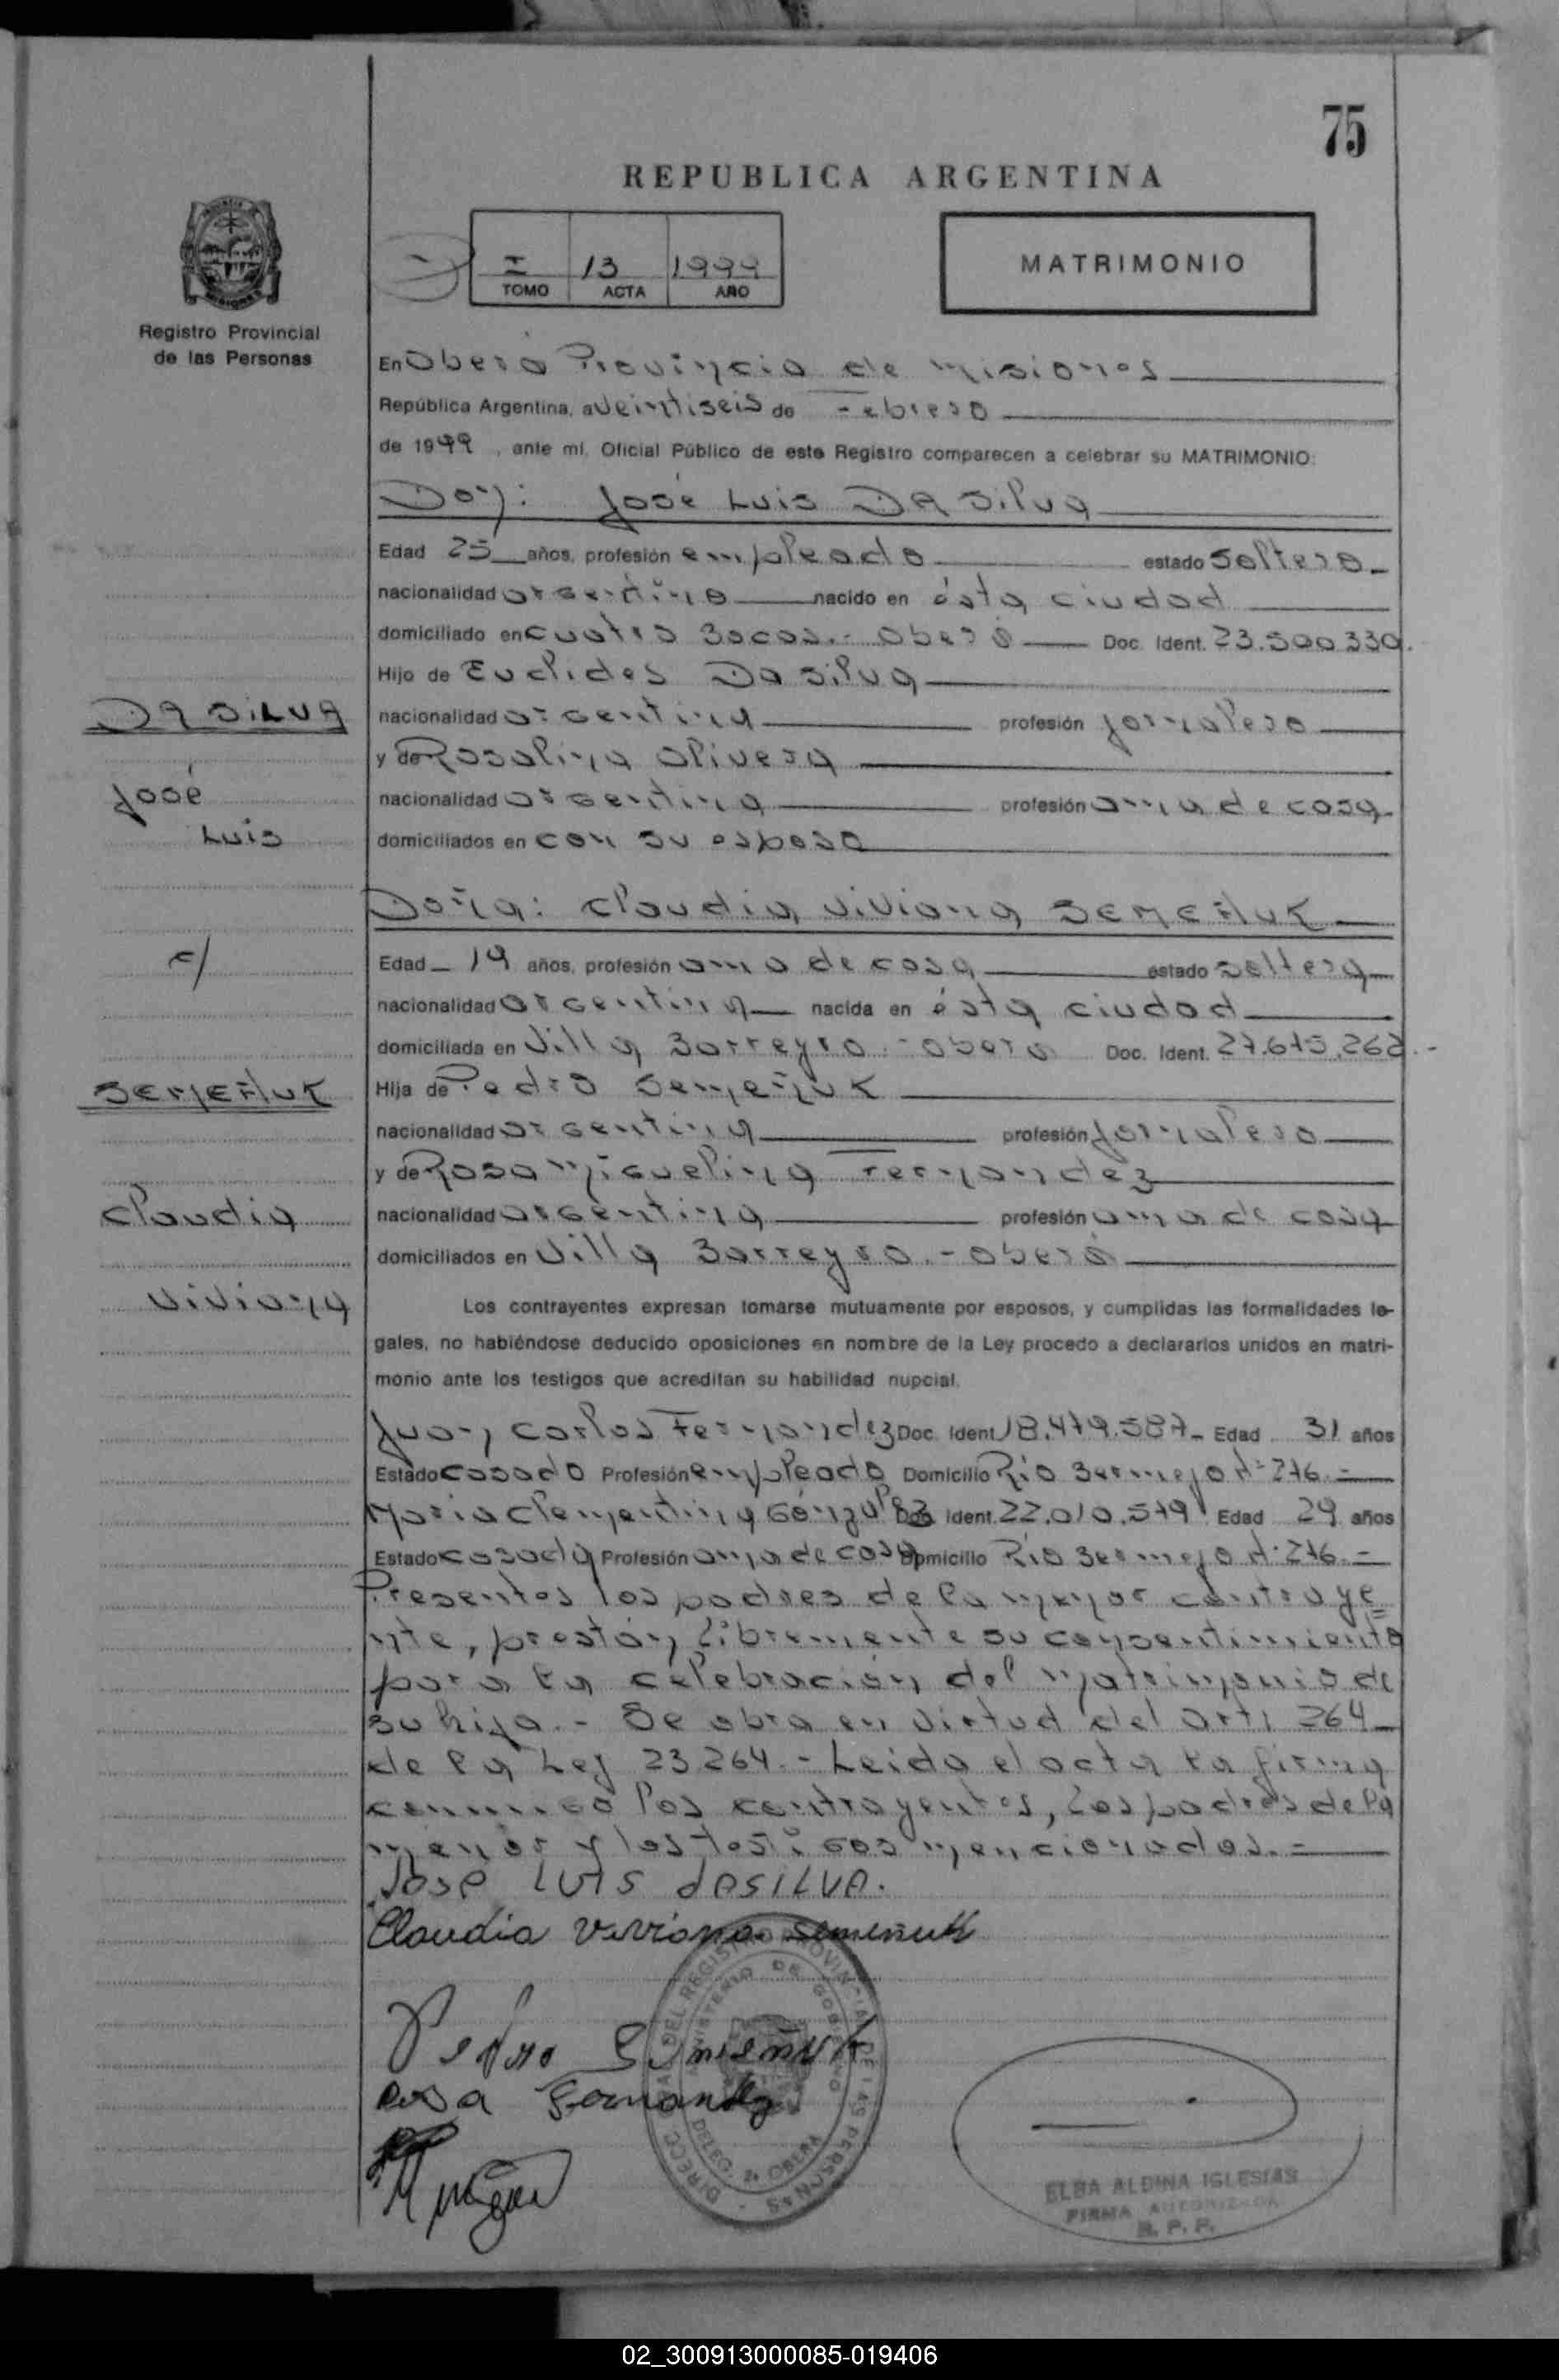 75
REPUBLICA ARGENTINA
I 13 1999
TOMO ACTA AÑO
MATRIMONIO
Registro Provincial
de las Personas
En Oberá Provincia de Misiones
República Argentina, a veintiseis de Febrero
de 1999, ante mi, Oficial Público de este Registro comparecen a celebrar su MATRIMONIO:
Don: José Luis Da Silva
Edad 25 años, profesión empleado estado soltero
nacionalidad argentino nacido en ésta ciudad
domiciliado en cuatro Bocas.- Oberá Doc. Ident. 23.500.339.
Hijo de Euclides Da Silva
nacionalidad argentina profesión jornalero
y de Rosalina Olivera
nacionalidad argentina profesión ama de casa
domiciliados en con su esposo
Da Silva
José
Luis
c/
Semeñuk
Claudia
Viviana
Doña: Claudia Viviana Semeñuk
Edad 19 años, profesión ama de casa estado soltera
nacionalidad argentina nacida en ésta ciudad
domiciliada en Villa Barreyro.- Oberá Doc. Ident. 27.675.262.-
Hija de Pedro Semeñuk
nacionalidad argentina profesión jornalero
y de Rosa Miguelina Fernandez
nacionalidad argentina profesión ama de casa
domiciliados en Villa Barreyro.- Oberá
Los contrayentes expresan tomarse mutuamente por esposos, y cumplidas las formalidades le-
gales, no habiéndose deducido oposiciones en nombre de la Ley procedo a declararlos unidos en matri-
monio ante los testigos que acreditan su habilidad nupcial.
Juan Carlos Fernandez Doc. Ident. 18.479.587 Edad 31 años
Estado casado Profesión empleado Domicilio Rio Bermejo N° 276.=
Maria Clementina Gónzalez Doc. Ident. 22.010.579 Edad 29 años
Estado casada Profesión ama de casa Domicilio Rio Bermejo N° 276.=
Presentes los padres de la mayor contraye=
nte, prestán libremente su consentimiento
para la celebración del matrimonio de
su hija.- Se obra en virtud del art: 264
de la Ley 23264.- Leida el acta la firma
conmigo los contrayentes, los padres de la
menor y los testigos mencionados.=
José Luis dasilva.
Claudia Viviana Semenuk
Pedro Semeñuk
Rosa Fernandez
DIRECC. GRAL. DEL REGISTRO PROVINCIAL DE LAS PERSONAS
MINISTERIO DE GOBIERNO
DELEG. OBERA
ELBA ALDINA IGLESIAS
FIRMA AUTORIZADA
R. P. P.
02_300913000085-019406